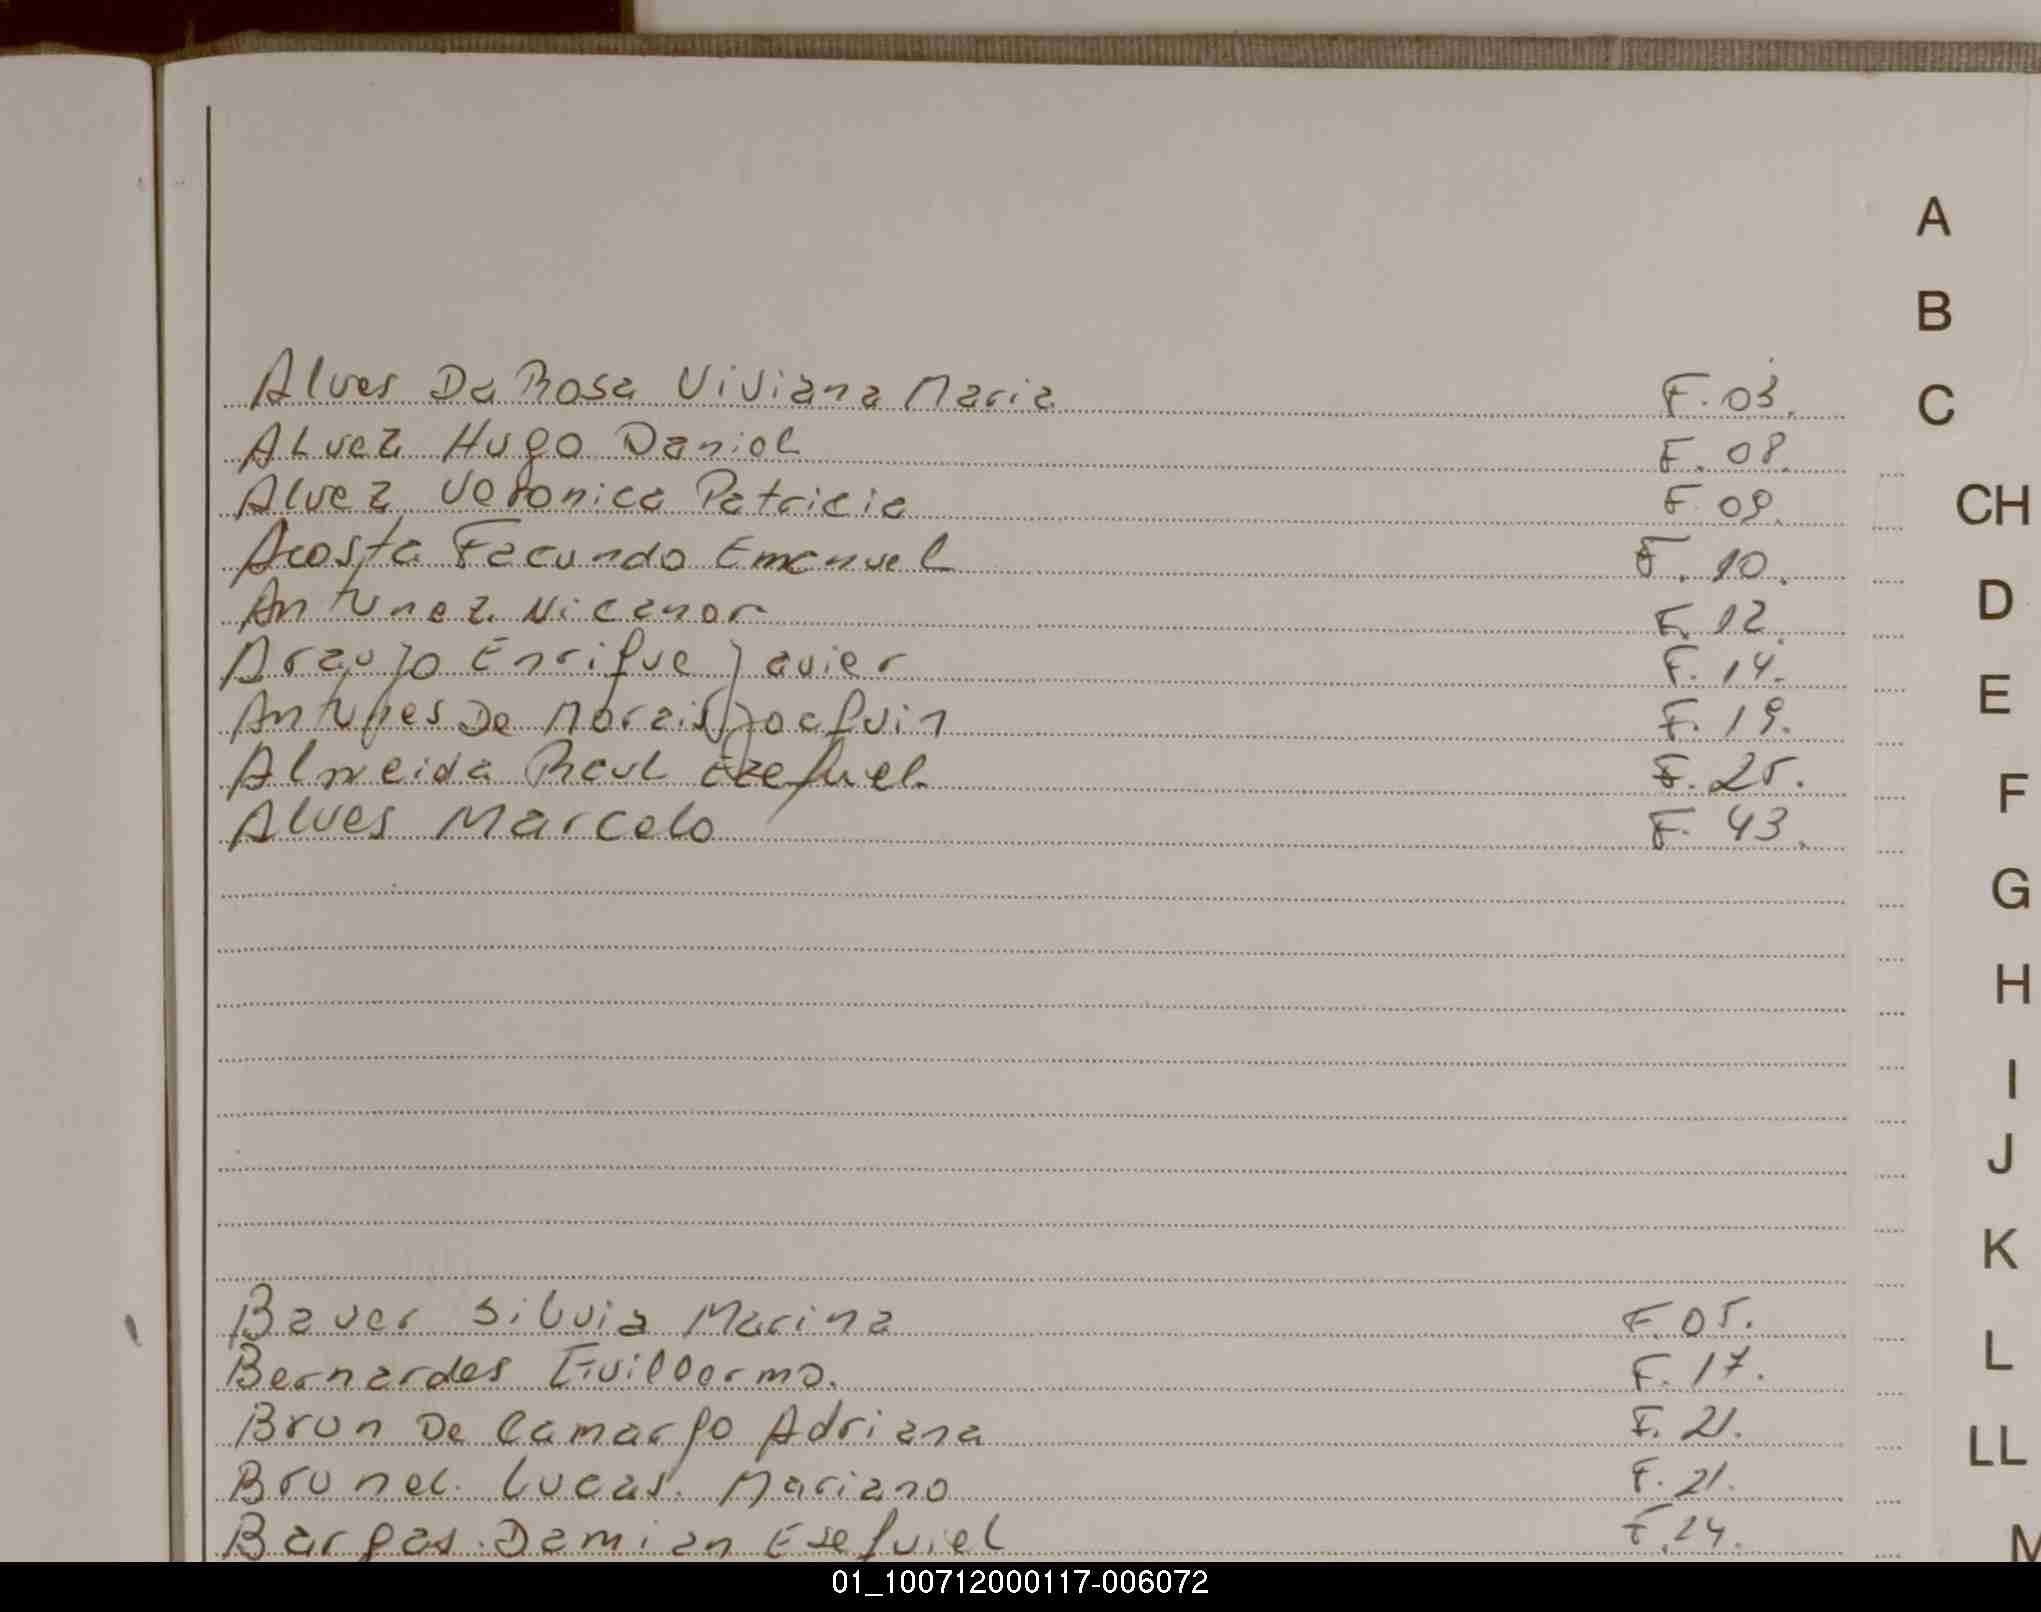 A
B
Alves Da Rosa Viviana Maria F. 03.
C
Alvez Hugo Daniel F. 08.
Alvez Veronica Patricia F. 09.
CH
Acosta Facundo Emanuel F. 10.
D
Antunez Nicanor F. 12.
Araujo Enrique Javier F. 14.
E
Antunes De Morais Joaquin F. 19.
Almeida Raul Ezequiel F. 25.
F
Alves Marcelo F. 43.
G
H
I
J
K
Bauer Silvia Marina F. 05.
L
Bernardes Guillermo. F. 17.
Brun De Camargo Adriana F. 21.
LL
Brunel. Lucas. Mariano F. 21.
Bargas. Damian Esequiel F. 24.
M
01_100712000117-006072